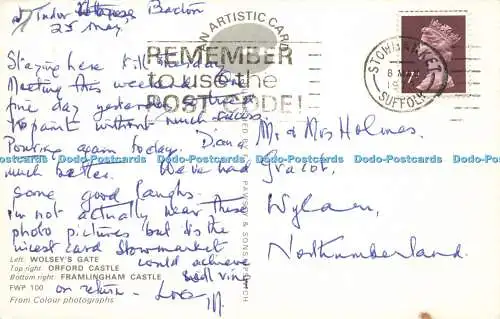 at Tudor Bacton
25 May
Staying here till Monday
Meeting this weekend. One
fine day yesterday
to paint without much success
Pouring again today. Diana
much better. We've had
some good laughs.
I'm not actually near these
photo pictures but its the
nicest card Stowmarket
could achieve
on return - Love
Mr & Mrs Holmes
Wylam,
Northumberland.
AN ARTISTIC CARD
REMEMBER
to use the
POST CODE!
STOWMARKET
8 M
19
SUFFOLK
7
PAWSEY & SONS IPSWICH
Left: WOLSEY'S GATE
Top right: ORFORD CASTLE
Bottom right: FRAMLINGHAM CASTLE
FWP 100
From Colour photographs
Dodo-Postcards Dodo-Postcards Dodo-Postcards Dodo-Postcards Dodo-Postcards Dodo-Postcards